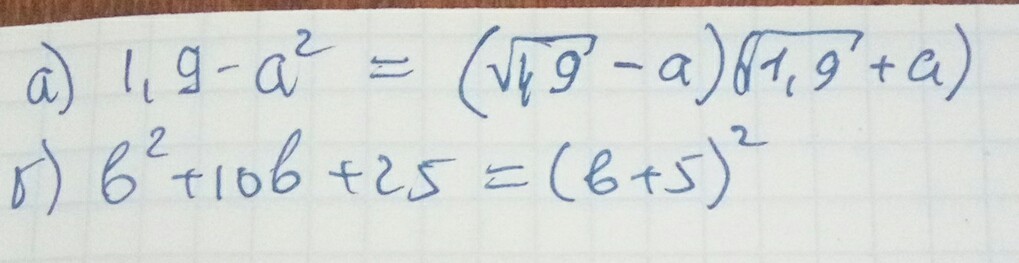 а) 1,9 - a² = (√1,9 - a)(√1,9 + a)
б) b² + 10b + 25 = (b + 5)²